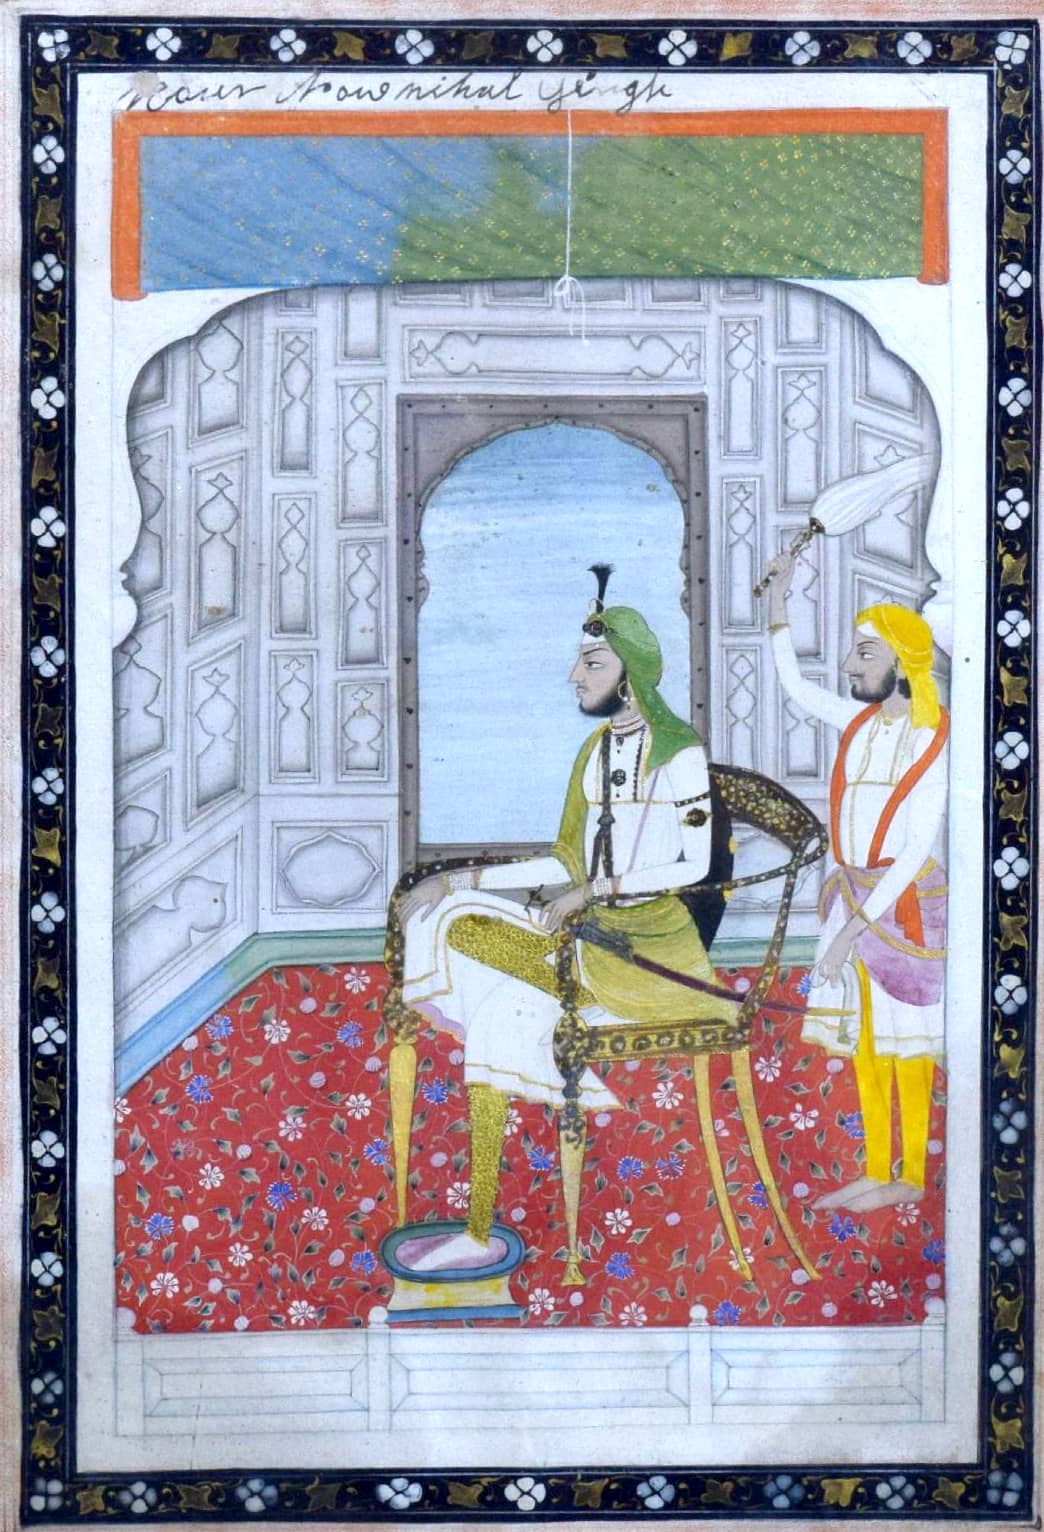 Kowr Nownihal Singh